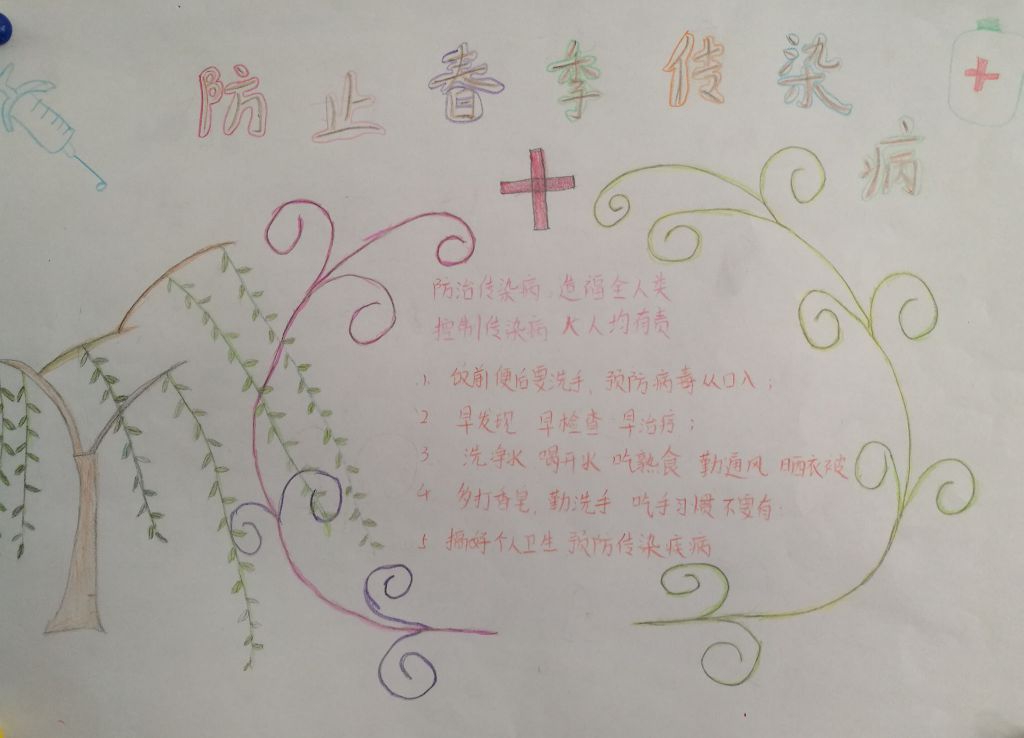 防止春季传染病
防治传染病 造福全人类
控制传染病 人人均有责
1. 饭前便后要洗手, 预防病毒从口入;
2 早发现 早检查 早治疗;
3. 洗净水 喝开水 吃熟食 勤通风 晒衣被
4 多打香皂, 勤洗手 吃手习惯不要有.
5 搞好个人卫生 预防传染疾病